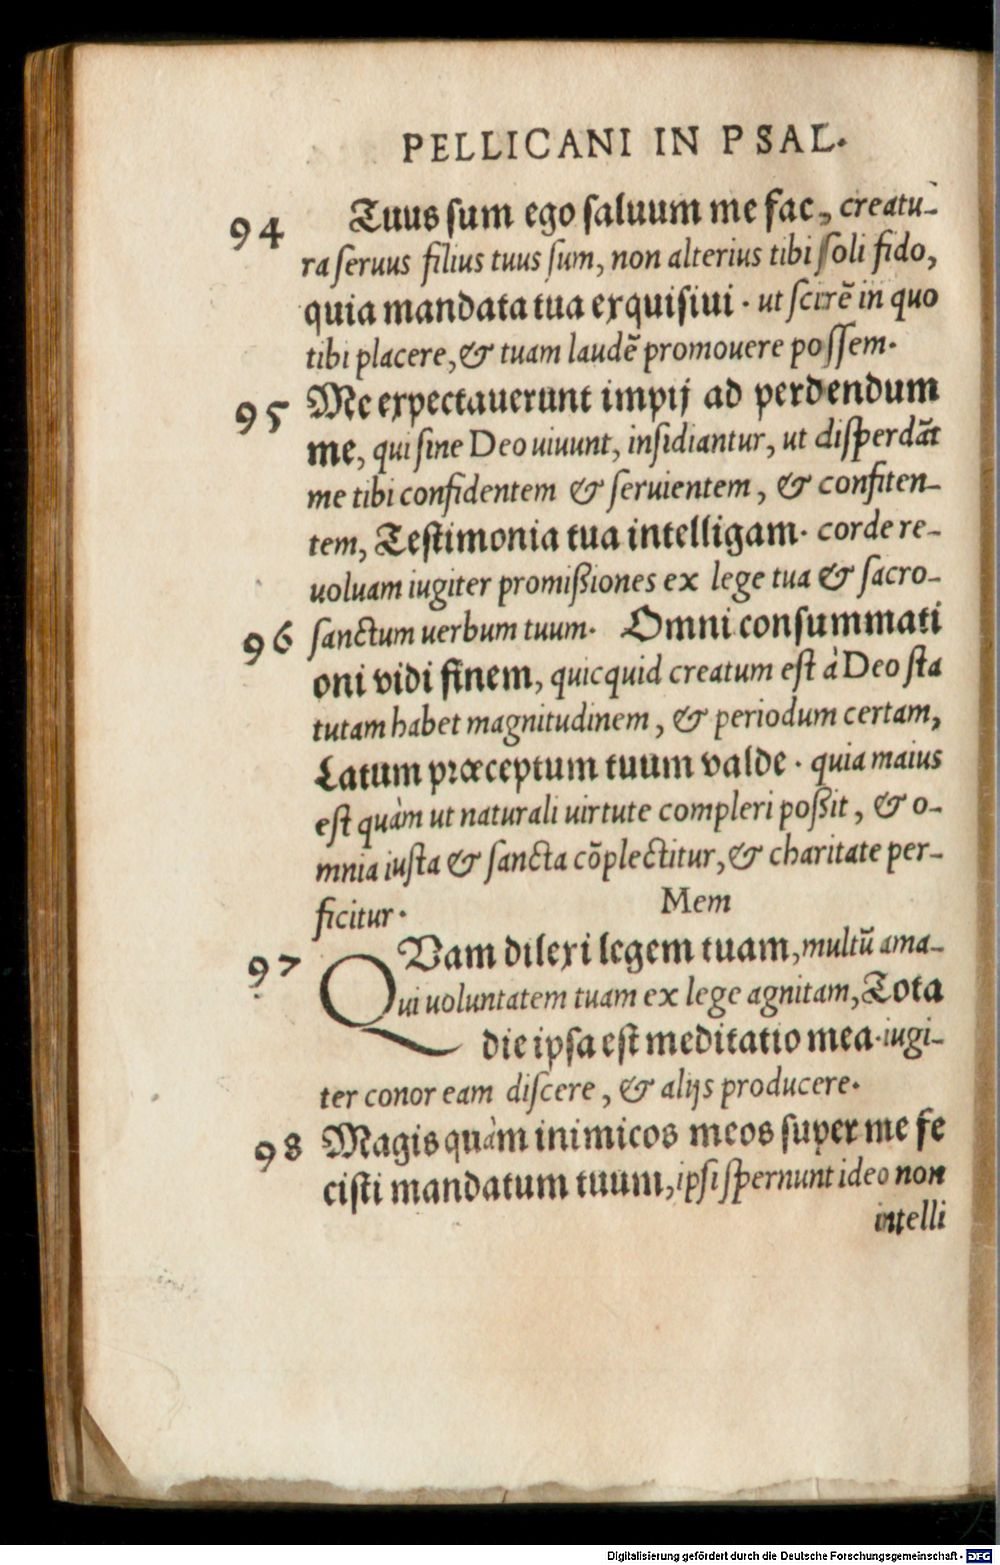 PELLICANI IN PSAL.
94 Tuus sum ego saluum me fac, creatu-
ra seruus filius tuus sum, non alterius tibi soli fido,
quia mandata tua exquisiui · ut scirẽ in quo
tibi placere, & tuam laudẽ promouere possem.
95 Me expectauerunt impij ad perdendum
me, qui sine Deo uiuunt, insidiantur, ut disperdãt
me tibi confidentem & seruientem, & confiten-
tem, Testimonia tua intelligam. corde re-
uoluam iugiter promißiones ex lege tua & sacro-
96 sanctum uerbum tuum. Omni consummati
oni vidi finem, quicquid creatum est à Deo sta
tutam habet magnitudinem, & periodum certam,
Latum præceptum tuum valde · quia maius
est quàm ut naturali uirtute compleri poßit, & o-
mnia iusta & sancta cõplectitur, & charitate per-
ficitur. Mem
97 QVam dilexi legem tuam, multũ ama-
ui uoluntatem tuam ex lege agnitam, Tota
die ipsa est meditatio mea. iugi-
ter conor eam discere, & alijs producere.
98 Magis quàm inimicos meos super me fe
cisti mandatum tuum, ipsi spernunt ideo non
intelli
Digitalisierung gefördert durch die Deutsche Forschungsgemeinschaft - DFG